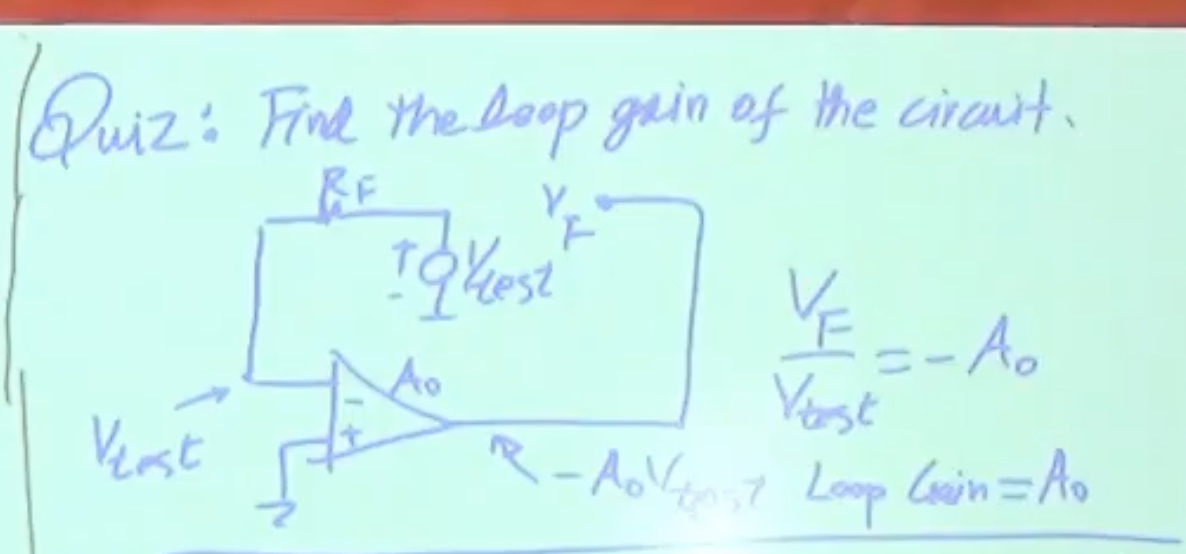 Quiz: Find the loop gain of the circuit.
RF
VF
+
-
Vtest
A0
-
+
Vtest
-A0Vtest
VF
Vtest
= -A0
Loop Gain = A0